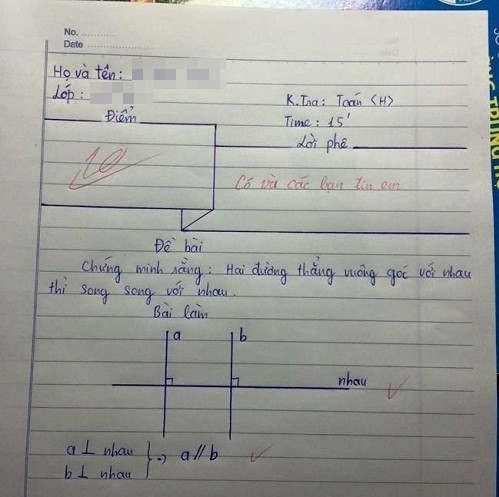 No.
Date
Họ và tên:
Lớp:
K.Tra: Toán <H>
Time: 15'
Điểm
Lời phê
10
Cô và các bạn tin em
Đề bài
Chứng minh rằng: Hai đường thẳng vuông góc với nhau
thì song song với nhau.
Bài làm
a b
nhau
a ⊥ nhau
b ⊥ nhau
} => a // b